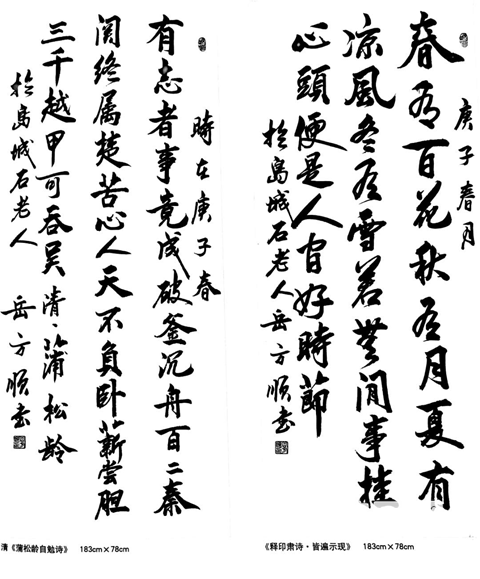 春有百花秋有月夏有
凉風冬有雪若無闲事挂
心頭便是人间好時節
庚子春月
於島城石老人岳方順书
有志者事竟成破釜沉舟百二秦
関终属楚苦心人天不負卧薪尝胆
三千越甲可吞吴 清、蒲松龄
時在庚子春
於島城石老人
岳方順书
清《蒲松龄自勉诗》 183cm×78cm
《释印肃诗·皆遍示现》 183cm×78cm